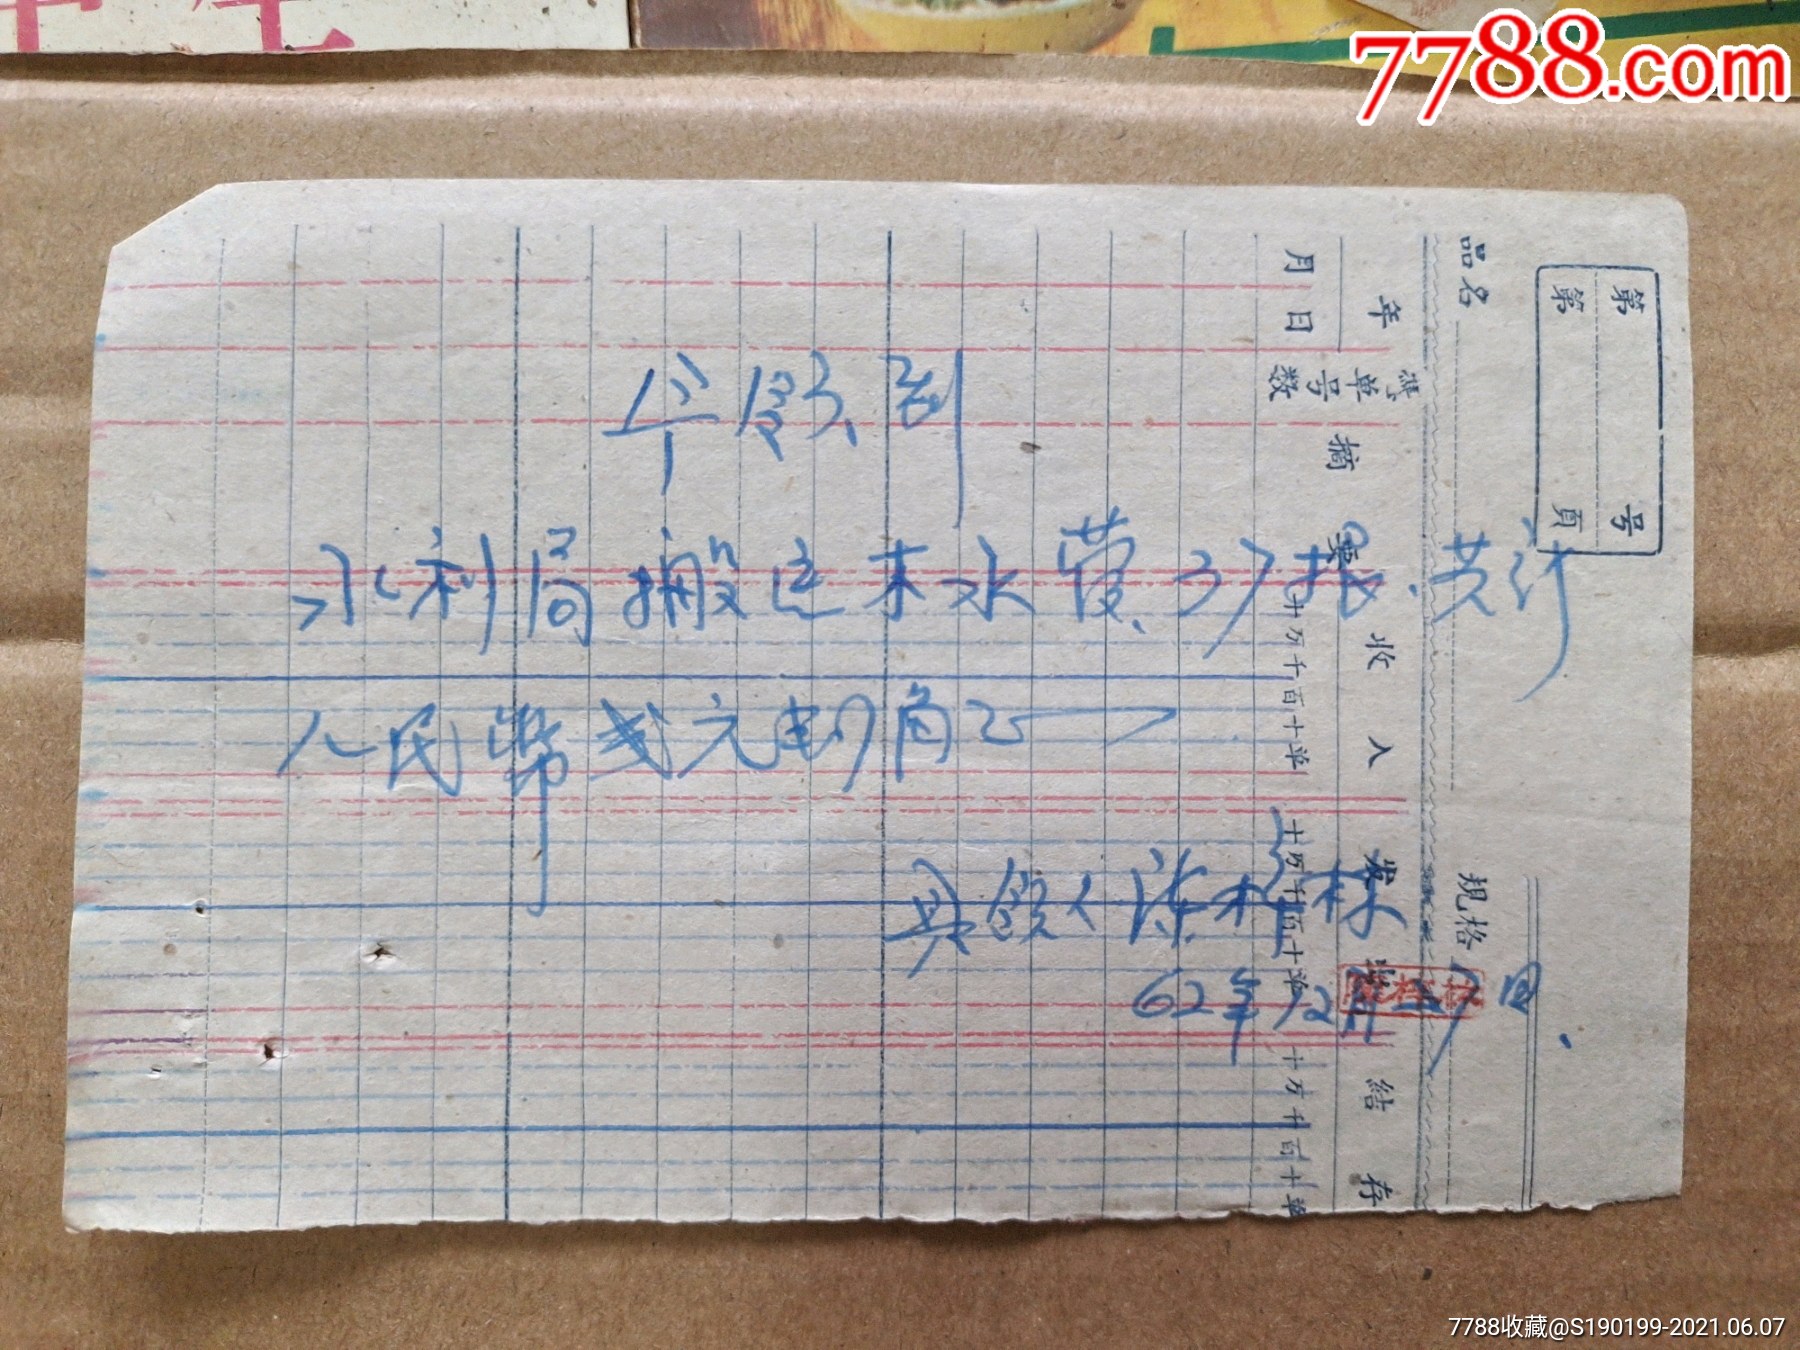 7788.com
今领到
水利局搬运木水营37根.共计
人民幣 元 角
具领人陈 林
62年12月 日
第 号
第 頁
品名
規格
年
月 日
單号
号数
摘要
收入
发
結存
十万千百十单
十万千百十单
十万千百十单
7788收藏@S190199-2021.06.07